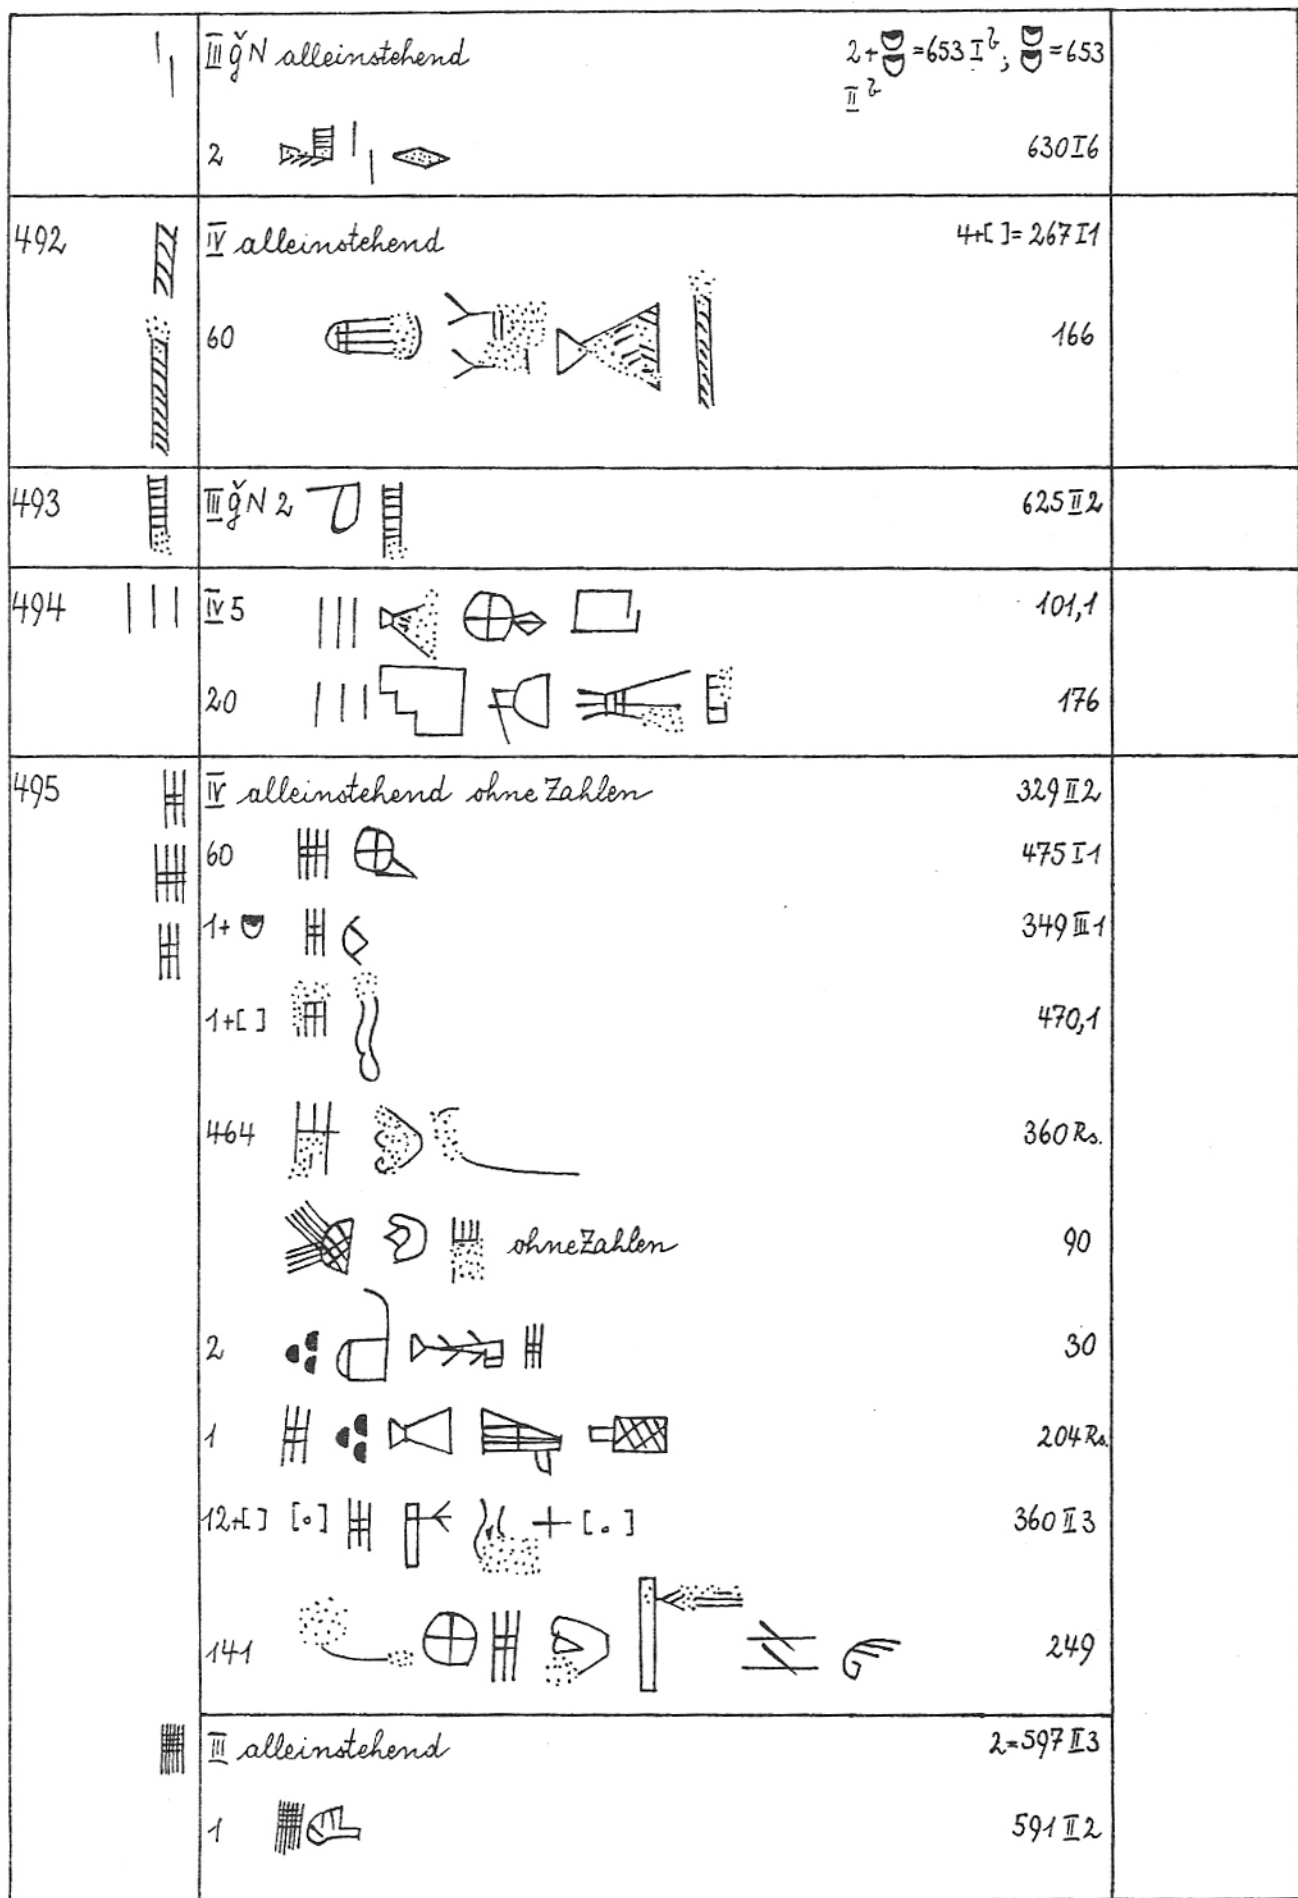 III ǧN alleinstehend 2+ =653 I b; =653
II b
2 630 I 6
492 IV alleinstehend 4+[ ]=267 I 1
60 166
493 III ǧN 2 625 II 2
494 IV 5 101,1
20 176
495 IV alleinstehend ohne Zahlen 329 II 2
60 475 I 1
1+ 349 III 1
1+[ ] 470,1
464 360 Rs.
ohne Zahlen 90
2 30
1 204 Rs.
12+[ ] [∘] [.] 360 II 3
141 249
III alleinstehend 2=597 II 3
1 591 II 2